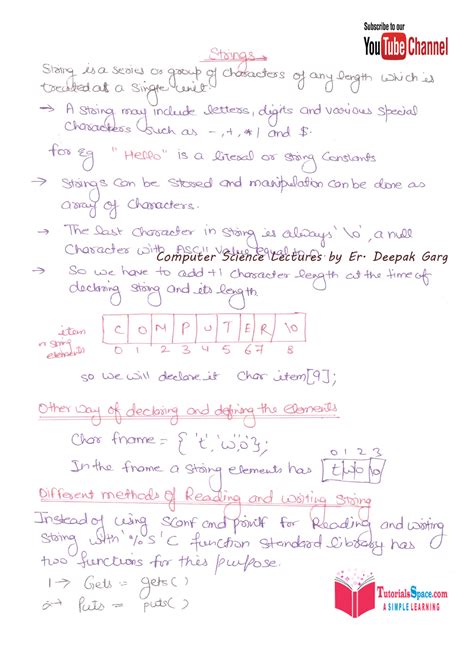 Subscribe to our
YouTube Channel
Strings
String is a series or group of characters of any length which is
treated at a single unit
→ A string may include letters, digits and various special
characters such as -, +, *| and $.
for Eg "Hello" is a literal or string constants
→ Strings can be stored and manipulation can be done as
array of characters.
→ The last character in string is always '\o', a null
character with ASCII value equal to
Computer Science Lectures by Er. Deepak Garg
→ So we have to add +1 character length at the time of
declaring string and its length
item C O M P U T E R \o
n string
elements 0 1 2 3 4 5 6 7 8
so we will declare it Char item[9];
Other way of declaring and defining the elements
Char fname = { 't','w','o'};
0 1 2 3
In the fname a string elements has t w o \o
Different methods of Reading and writing string
Instead of using scanf and printf for Reading and writing
string with '%s' C function standard library has
two functions for this purpose.
1 → Gets = gets( )
→ Puts = puts( )
TutorialsSpace.com
A SIMPLE LEARNING